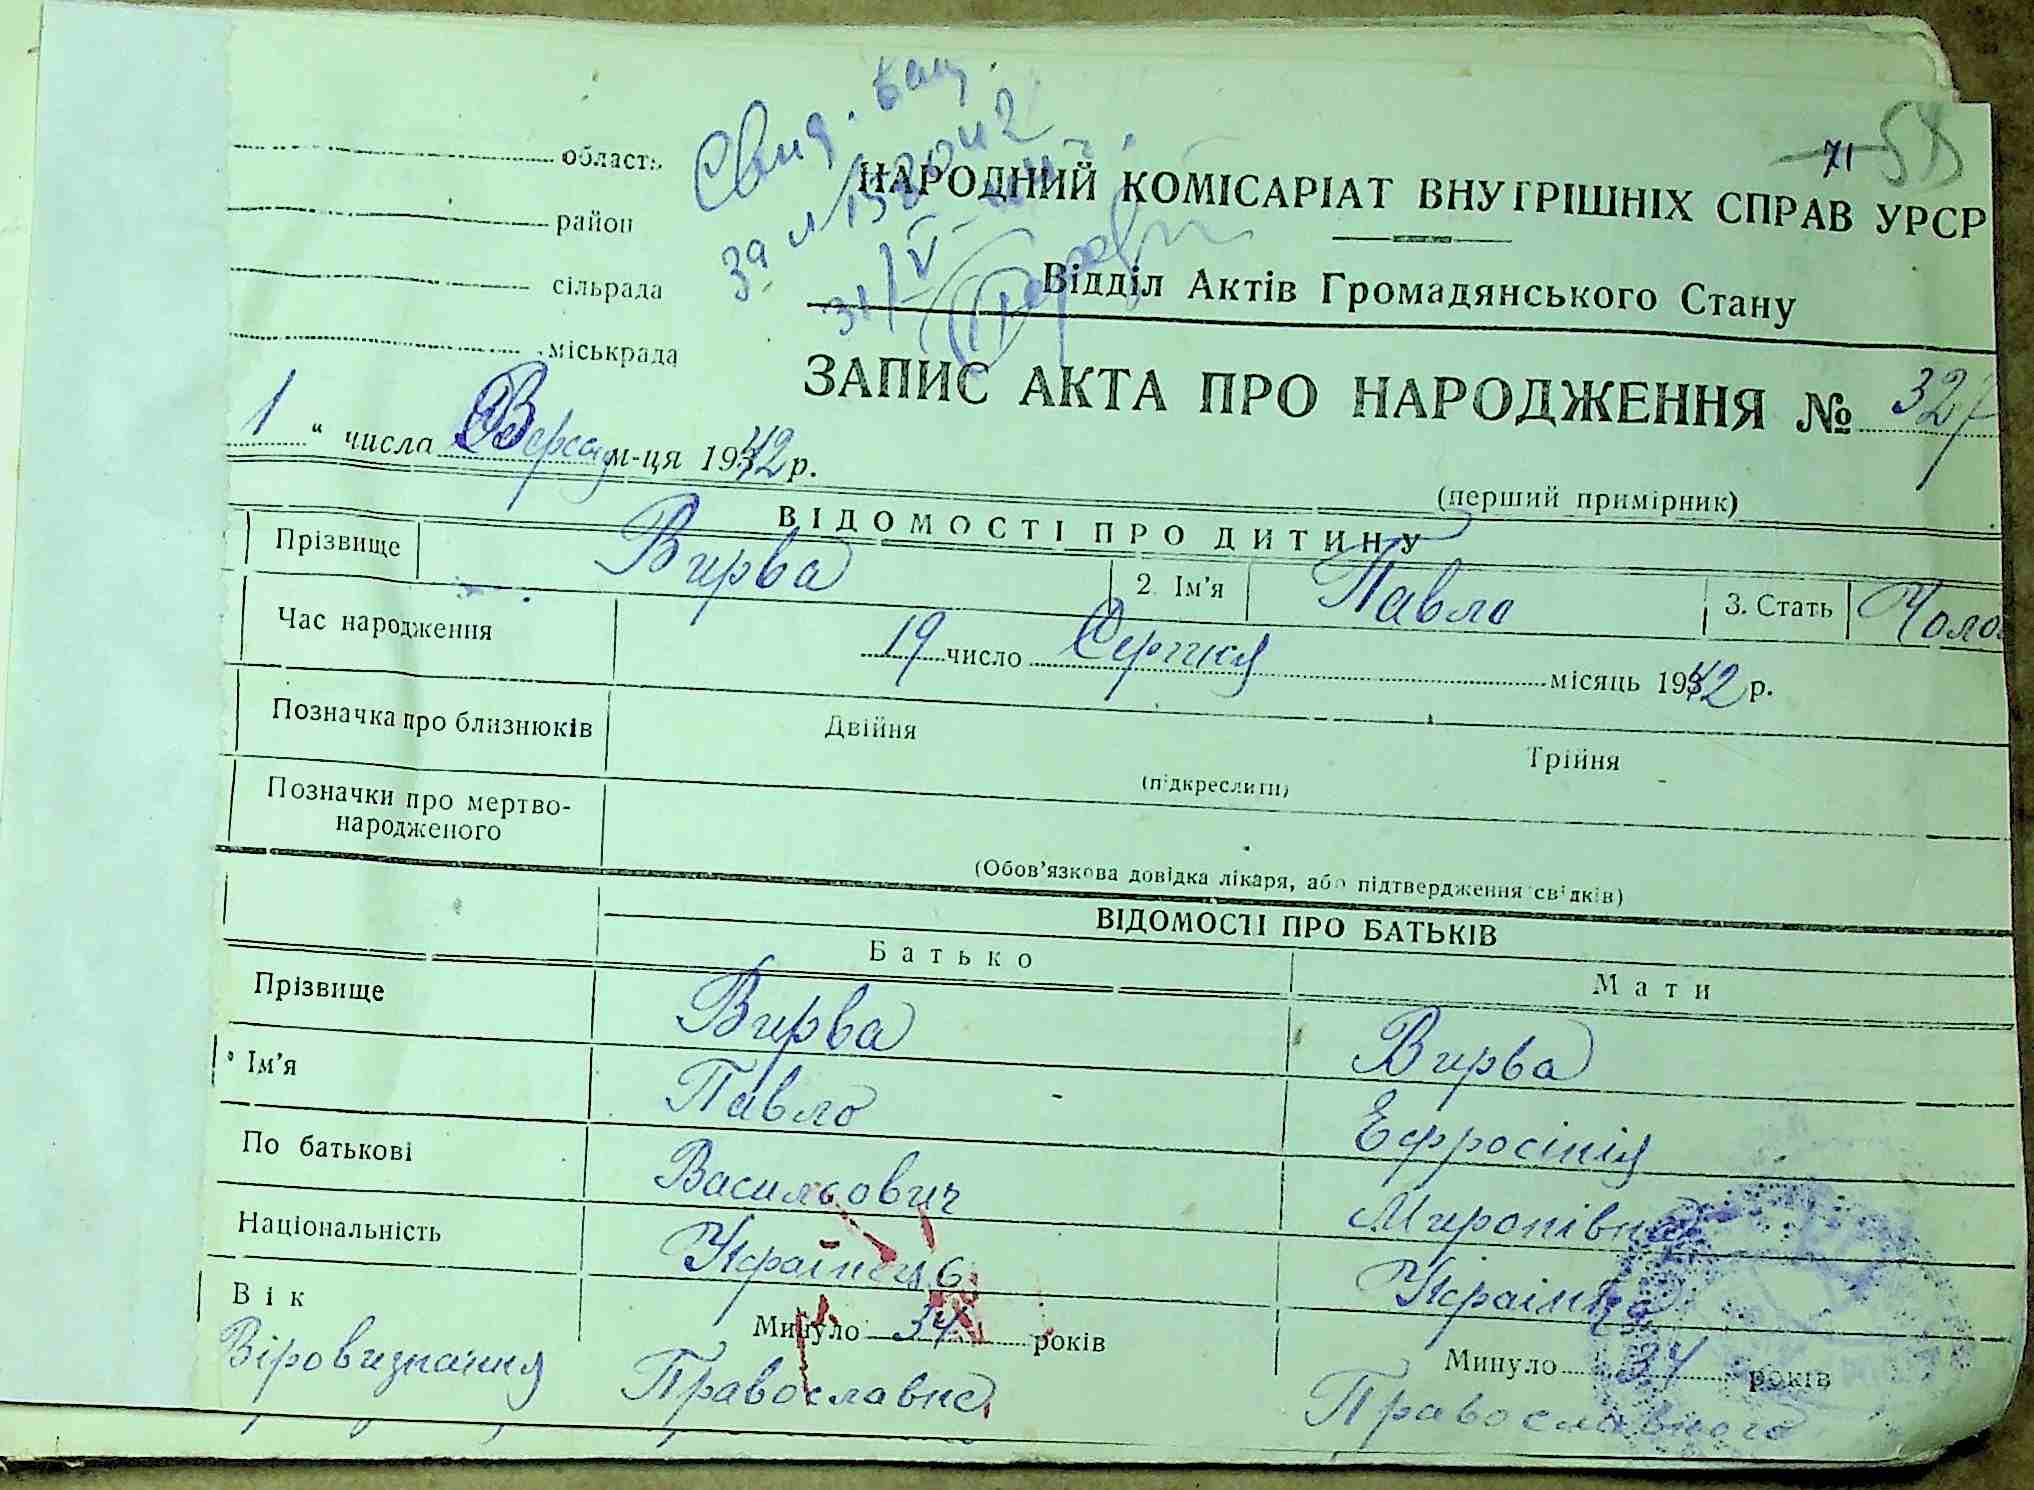 71 58
область
район
сільрада
міськрада
Свид.
за № 152042
31/V
НАРОДНИЙ КОМІСАРІАТ ВНУТРІШНІХ СПРАВ УРСР
Відділ Актів Громадянського Стану
ЗАПИС АКТА ПРО НАРОДЖЕННЯ № 327
1 " числа м-ця 1942 р.
(перший примірник)
ВІДОМОСТІ ПРО ДИТИНУ
Прізвище Вирва 2. Ім'я Павло 3. Стать Чоло
Час народження 19 число Серпня місяць 1942 р.
Позначка про близнюків Двійня Трійня
(підкреслити)
Позначки про мертво-
народженого
(Обов'язкова довідка лікаря, або підтвердження свідків)
ВІДОМОСТІ ПРО БАТЬКІВ
Батько Мати
Прізвище Вирва Вирва
Ім'я Павло Ефросінія
По батькові Васильович Миронівна
Національність Українець Українка
Вік Минуло 34 років Минуло 34 років
Віровизнання Православне Православного